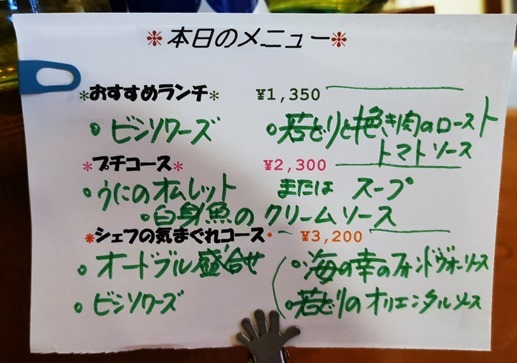 ❉本日のメニュー❉
*おすすめランチ* ¥1,350
・ビシソワーズ ・若どりと挽き肉のロースト
トマトソース
*プチコース* ¥2,300
・うにのオムレット または スープ
・白身魚の クリームソース
*シェフの気まぐれコース・ ¥3,200
・オードブル盛合せ ・海の幸のフォンドヴォーソース
・ビシソワーズ ・若どりのオリエンタルソース